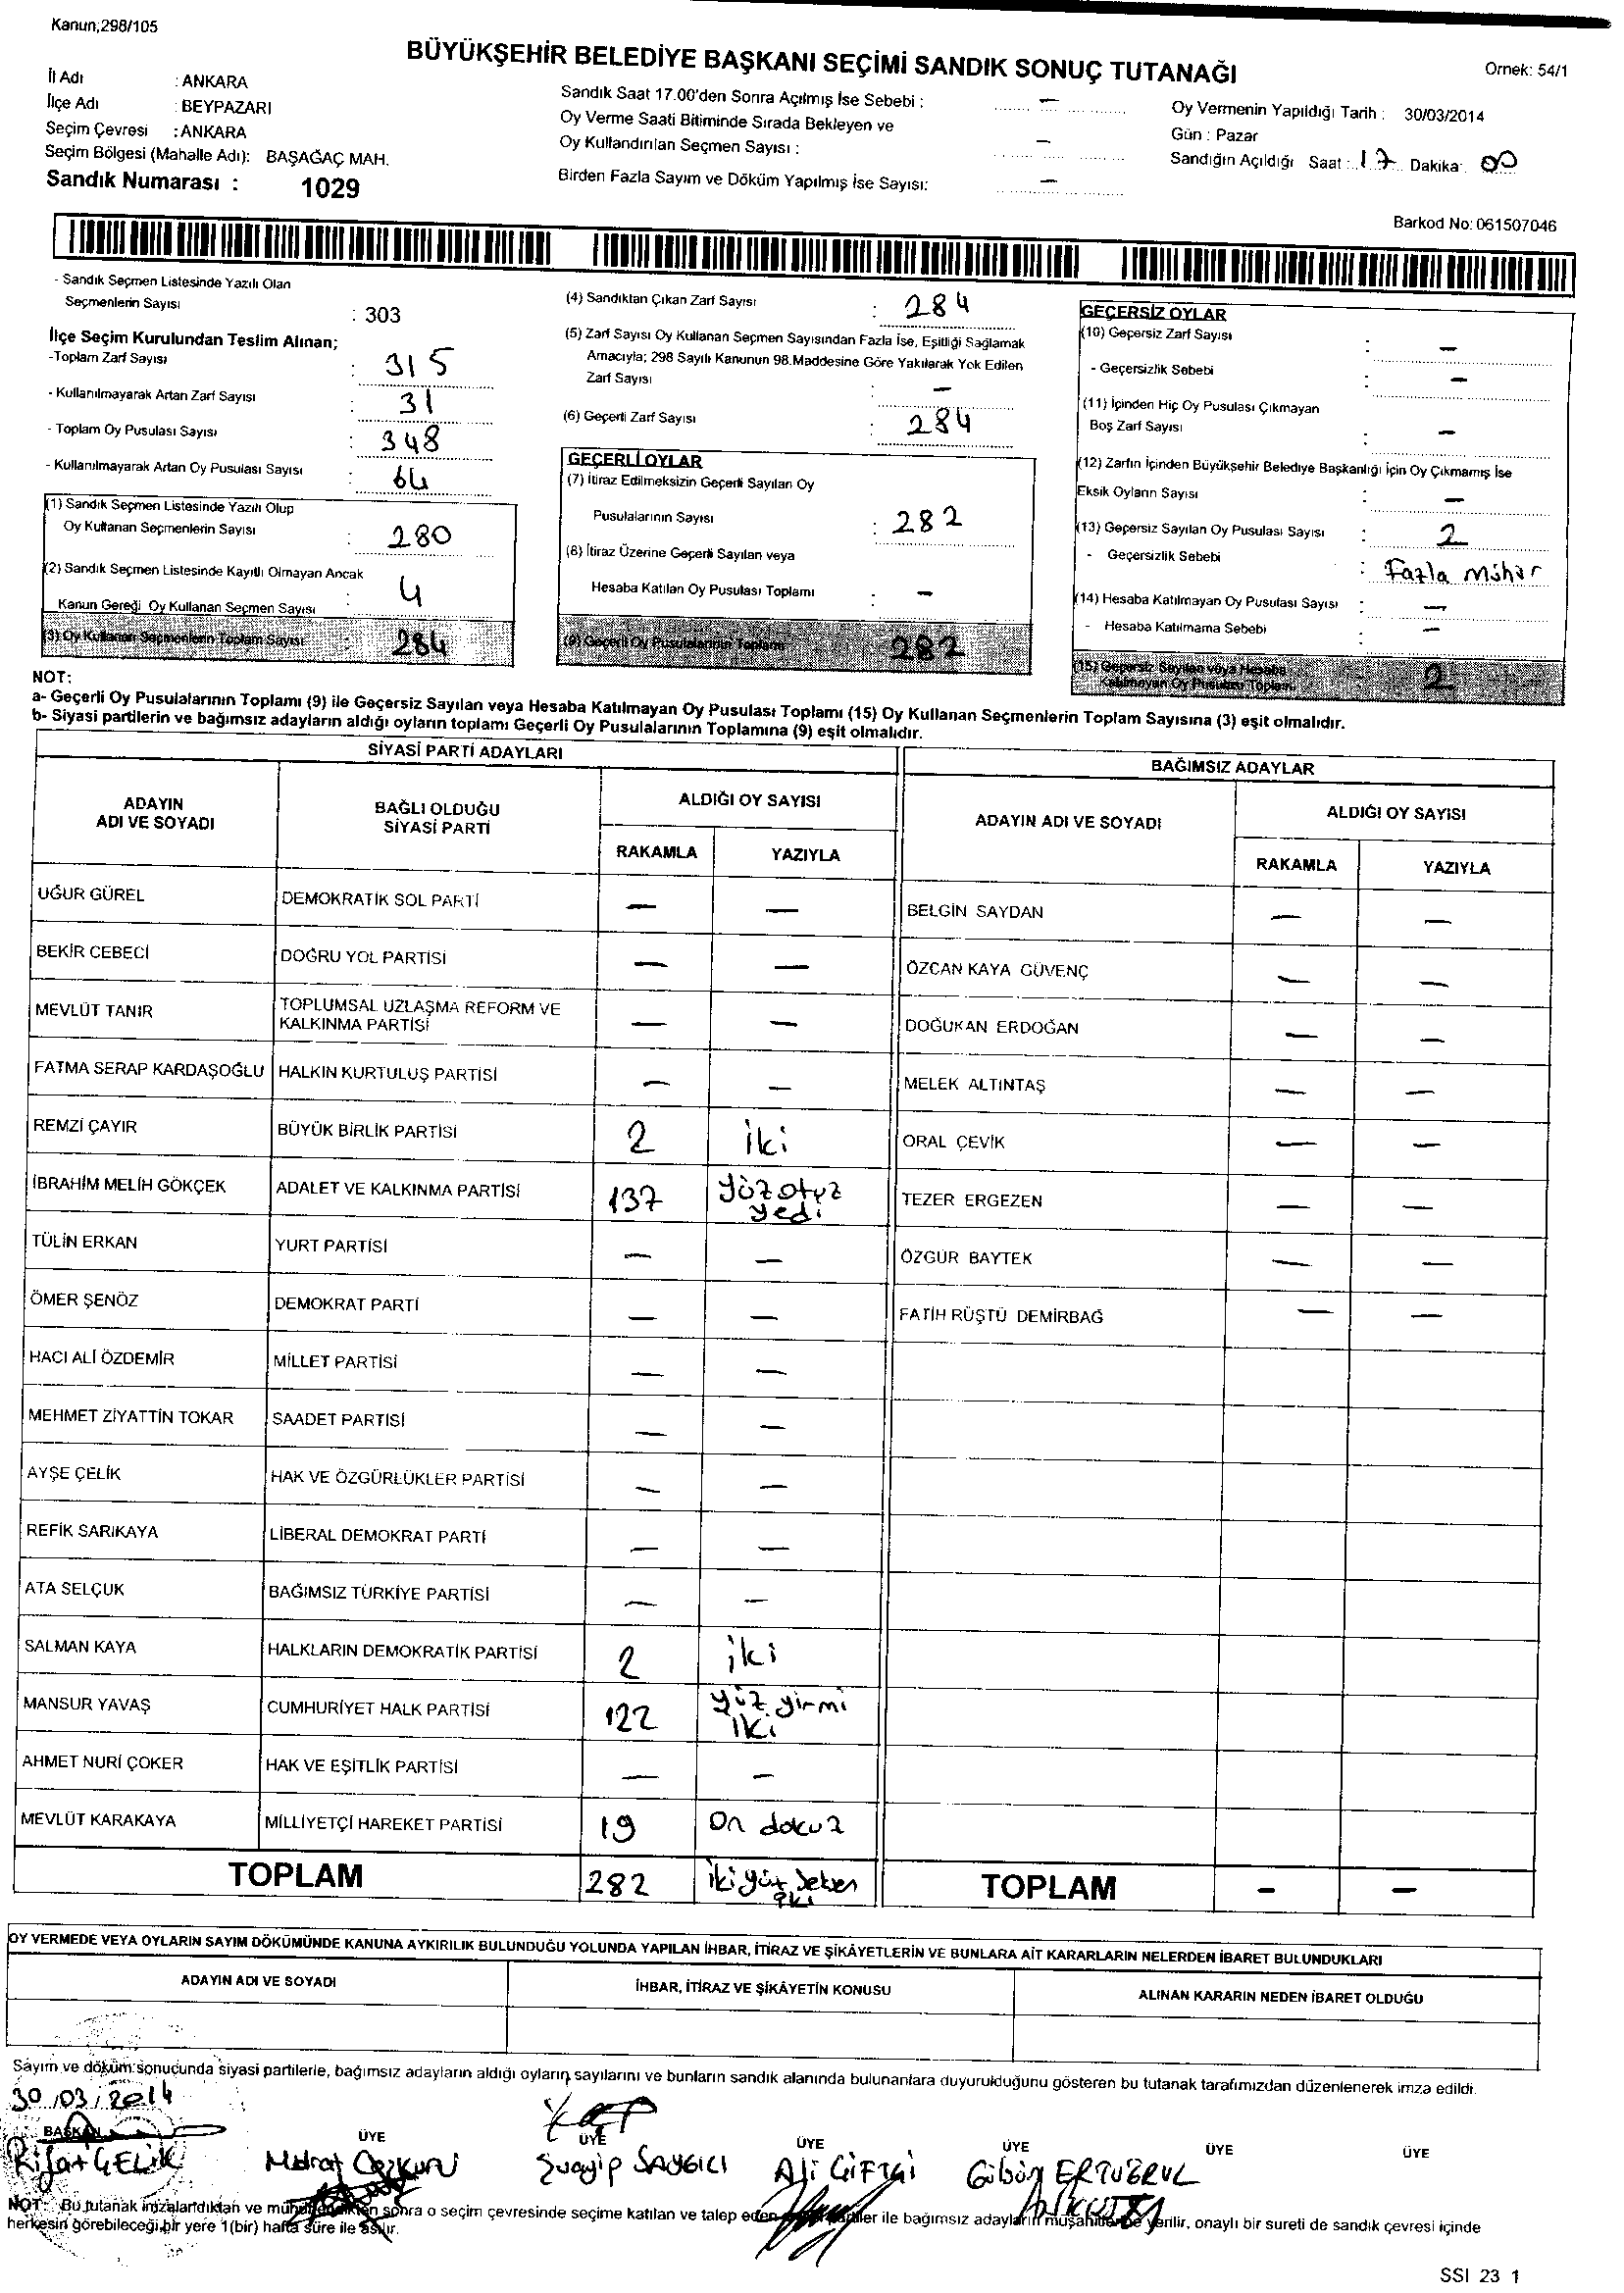 Kanun;298/105
BÜYÜKŞEHİR BELEDİYE BAŞKANI SEÇİMİ SANDIK SONUÇ TUTANAĞI
Ornek: 54/1
İl Adı : ANKARA
İlçe Adı : BEYPAZARI
Seçim Çevresi : ANKARA
Seçim Bölgesi (Mahalle Adı): BAŞAĞAÇ MAH.
Sandık Numarası : 1029
Sandık Saat 17.00'den Sonra Açılmış İse Sebebi : —
Oy Verme Saati Bitiminde Sırada Bekleyen ve
Oy Kullandırılan Seçmen Sayısı : —
Birden Fazla Sayım ve Döküm Yapılmış İse Sayısı: —
Oy Vermenin Yapıldığı Tarih : 30/03/2014
Gün : Pazar
Sandığın Açıldığı Saat : 17 Dakika: 00
Barkod No: 061507046
- Sandık Seçmen Listesinde Yazılı Olan
Seçmenlerin Sayısı : 303
İlçe Seçim Kurulundan Teslim Alınan;
-Toplam Zarf Sayısı : 315
- Kullanılmayarak Artan Zarf Sayısı : 31
- Toplam Oy Pusulası Sayısı : 348
- Kullanılmayarak Artan Oy Pusulası Sayısı : 64
(1) Sandık Seçmen Listesinde Yazılı Olup
Oy Kullanan Seçmenlerin Sayısı : 280
(2) Sandık Seçmen Listesinde Kayıtlı Olmayan Ancak
Kanun Gereği Oy Kullanan Seçmen Sayısı : 4
(3) Oy Kullanan Seçmenlerin Toplam Sayısı : 284
(4) Sandıktan Çıkan Zarf Sayısı : 284
(5) Zarf Sayısı Oy Kullanan Seçmen Sayısından Fazla İse, Eşitliği Sağlamak
Amacıyla; 298 Sayılı Kanunun 98.Maddesine Göre Yakılarak Yok Edilen
Zarf Sayısı : —
(6) Geçerli Zarf Sayısı : 284
GEÇERLİ OYLAR
(7) İtiraz Edilmeksizin Geçerli Sayılan Oy
Pusulalarının Sayısı : 282
(8) İtiraz Üzerine Geçerli Sayılan veya
Hesaba Katılan Oy Pusulası Toplamı : —
(9) Geçerli Oy Pusulalarının Toplamı 282
GEÇERSİZ OYLAR
(10) Geçersiz Zarf Sayısı : —
- Geçersizlik Sebebi : —
(11) İçinden Hiç Oy Pusulası Çıkmayan
Boş Zarf Sayısı : —
(12) Zarfın İçinden Büyükşehir Belediye Başkanlığı İçin Oy Çıkmamış İse
Eksik Oyların Sayısı : —
(13) Geçersiz Sayılan Oy Pusulası Sayısı : 2
- Geçersizlik Sebebi : Fazla Mühür
(14) Hesaba Katılmayan Oy Pusulası Sayısı : —
- Hesaba Katılmama Sebebi : —
(15) Geçersiz Sayılan veya Hesaba
Katılmayan Oy Pusulası Toplamı 2
NOT:
a- Geçerli Oy Pusulalarının Toplamı (9) ile Geçersiz Sayılan veya Hesaba Katılmayan Oy Pusulası Toplamı (15) Oy Kullanan Seçmenlerin Toplam Sayısına (3) eşit olmalıdır.
b- Siyasi partilerin ve bağımsız adayların aldığı oyların toplamı Geçerli Oy Pusulalarının Toplamına (9) eşit olmalıdır.
SİYASİ PARTİ ADAYLARI
ADAYIN ADI VE SOYADI
BAĞLI OLDUĞU SİYASİ PARTİ
ALDIĞI OY SAYISI
RAKAMLA YAZIYLA
UĞUR GÜREL DEMOKRATİK SOL PARTİ — —
BEKİR CEBECİ DOĞRU YOL PARTİSİ — —
MEVLÜT TANIR TOPLUMSAL UZLAŞMA REFORM VE KALKINMA PARTİSİ — —
FATMA SERAP KARDAŞOĞLU HALKIN KURTULUŞ PARTİSİ — —
REMZİ ÇAYIR BÜYÜK BİRLİK PARTİSİ 2 iki
İBRAHİM MELİH GÖKÇEK ADALET VE KALKINMA PARTİSİ 137 Yüz otuz yedi
TÜLİN ERKAN YURT PARTİSİ — —
ÖMER ŞENÖZ DEMOKRAT PARTİ — —
HACI ALİ ÖZDEMİR MİLLET PARTİSİ — —
MEHMET ZİYATTİN TOKAR SAADET PARTİSİ — —
AYŞE ÇELİK HAK VE ÖZGÜRLÜKLER PARTİSİ — —
REFİK SARIKAYA LİBERAL DEMOKRAT PARTİ — —
ATA SELÇUK BAĞIMSIZ TÜRKİYE PARTİSİ — —
SALMAN KAYA HALKLARIN DEMOKRATİK PARTİSİ 2 iki
MANSUR YAVAŞ CUMHURİYET HALK PARTİSİ 122 yüz yirmi iki
AHMET NURİ ÇOKER HAK VE EŞİTLİK PARTİSİ — —
MEVLÜT KARAKAYA MİLLİYETÇİ HAREKET PARTİSİ 19 On dokuz
TOPLAM 282 iki yüz seksen iki
BAĞIMSIZ ADAYLAR
ADAYIN ADI VE SOYADI
ALDIĞI OY SAYISI
RAKAMLA YAZIYLA
BELGİN SAYDAN — —
ÖZCAN KAYA GÜVENÇ — —
DOĞUKAN ERDOĞAN — —
MELEK ALTINTAŞ — —
ORAL ÇEVİK — —
TEZER ERGEZEN — —
ÖZGÜR BAYTEK — —
FATİH RÜŞTÜ DEMİRBAĞ — —
TOPLAM — —
OY VERMEDE VEYA OYLARIN SAYIM DÖKÜMÜNDE KANUNA AYKIRILIK BULUNDUĞU YOLUNDA YAPILAN İHBAR, İTİRAZ VE ŞİKÂYETLERİN VE BUNLARA AİT KARARLARIN NELERDEN İBARET BULUNDUKLARI
ADAYIN ADI VE SOYADI
İHBAR, İTİRAZ VE ŞİKÂYETİN KONUSU
ALINAN KARARIN NEDEN İBARET OLDUĞU
Sayım ve döküm sonucunda siyasi partilerle, bağımsız adayların aldığı oyların sayılarını ve bunların sandık alanında bulunanlara duyurulduğunu gösteren bu tutanak tarafımızdan düzenlenerek imza edildi.
30/03/2014
BAŞKAN ÜYE ÜYE ÜYE ÜYE ÜYE ÜYE
Rifat ÇELİK Murat Şuayip SAYGILI Ali ÇİFTÇİ ERTUĞRUL
NOT: Bu tutanak imzalandıktan ve mühürlendikten sonra o seçim çevresinde seçime katılan ve talep eden partiler ile bağımsız adayların müşahitlerine verilir, onaylı bir sureti de sandık çevresi içinde
herkesin görebileceği bir yere 1(bir) hafta süre ile asılır.
SSI 23 1